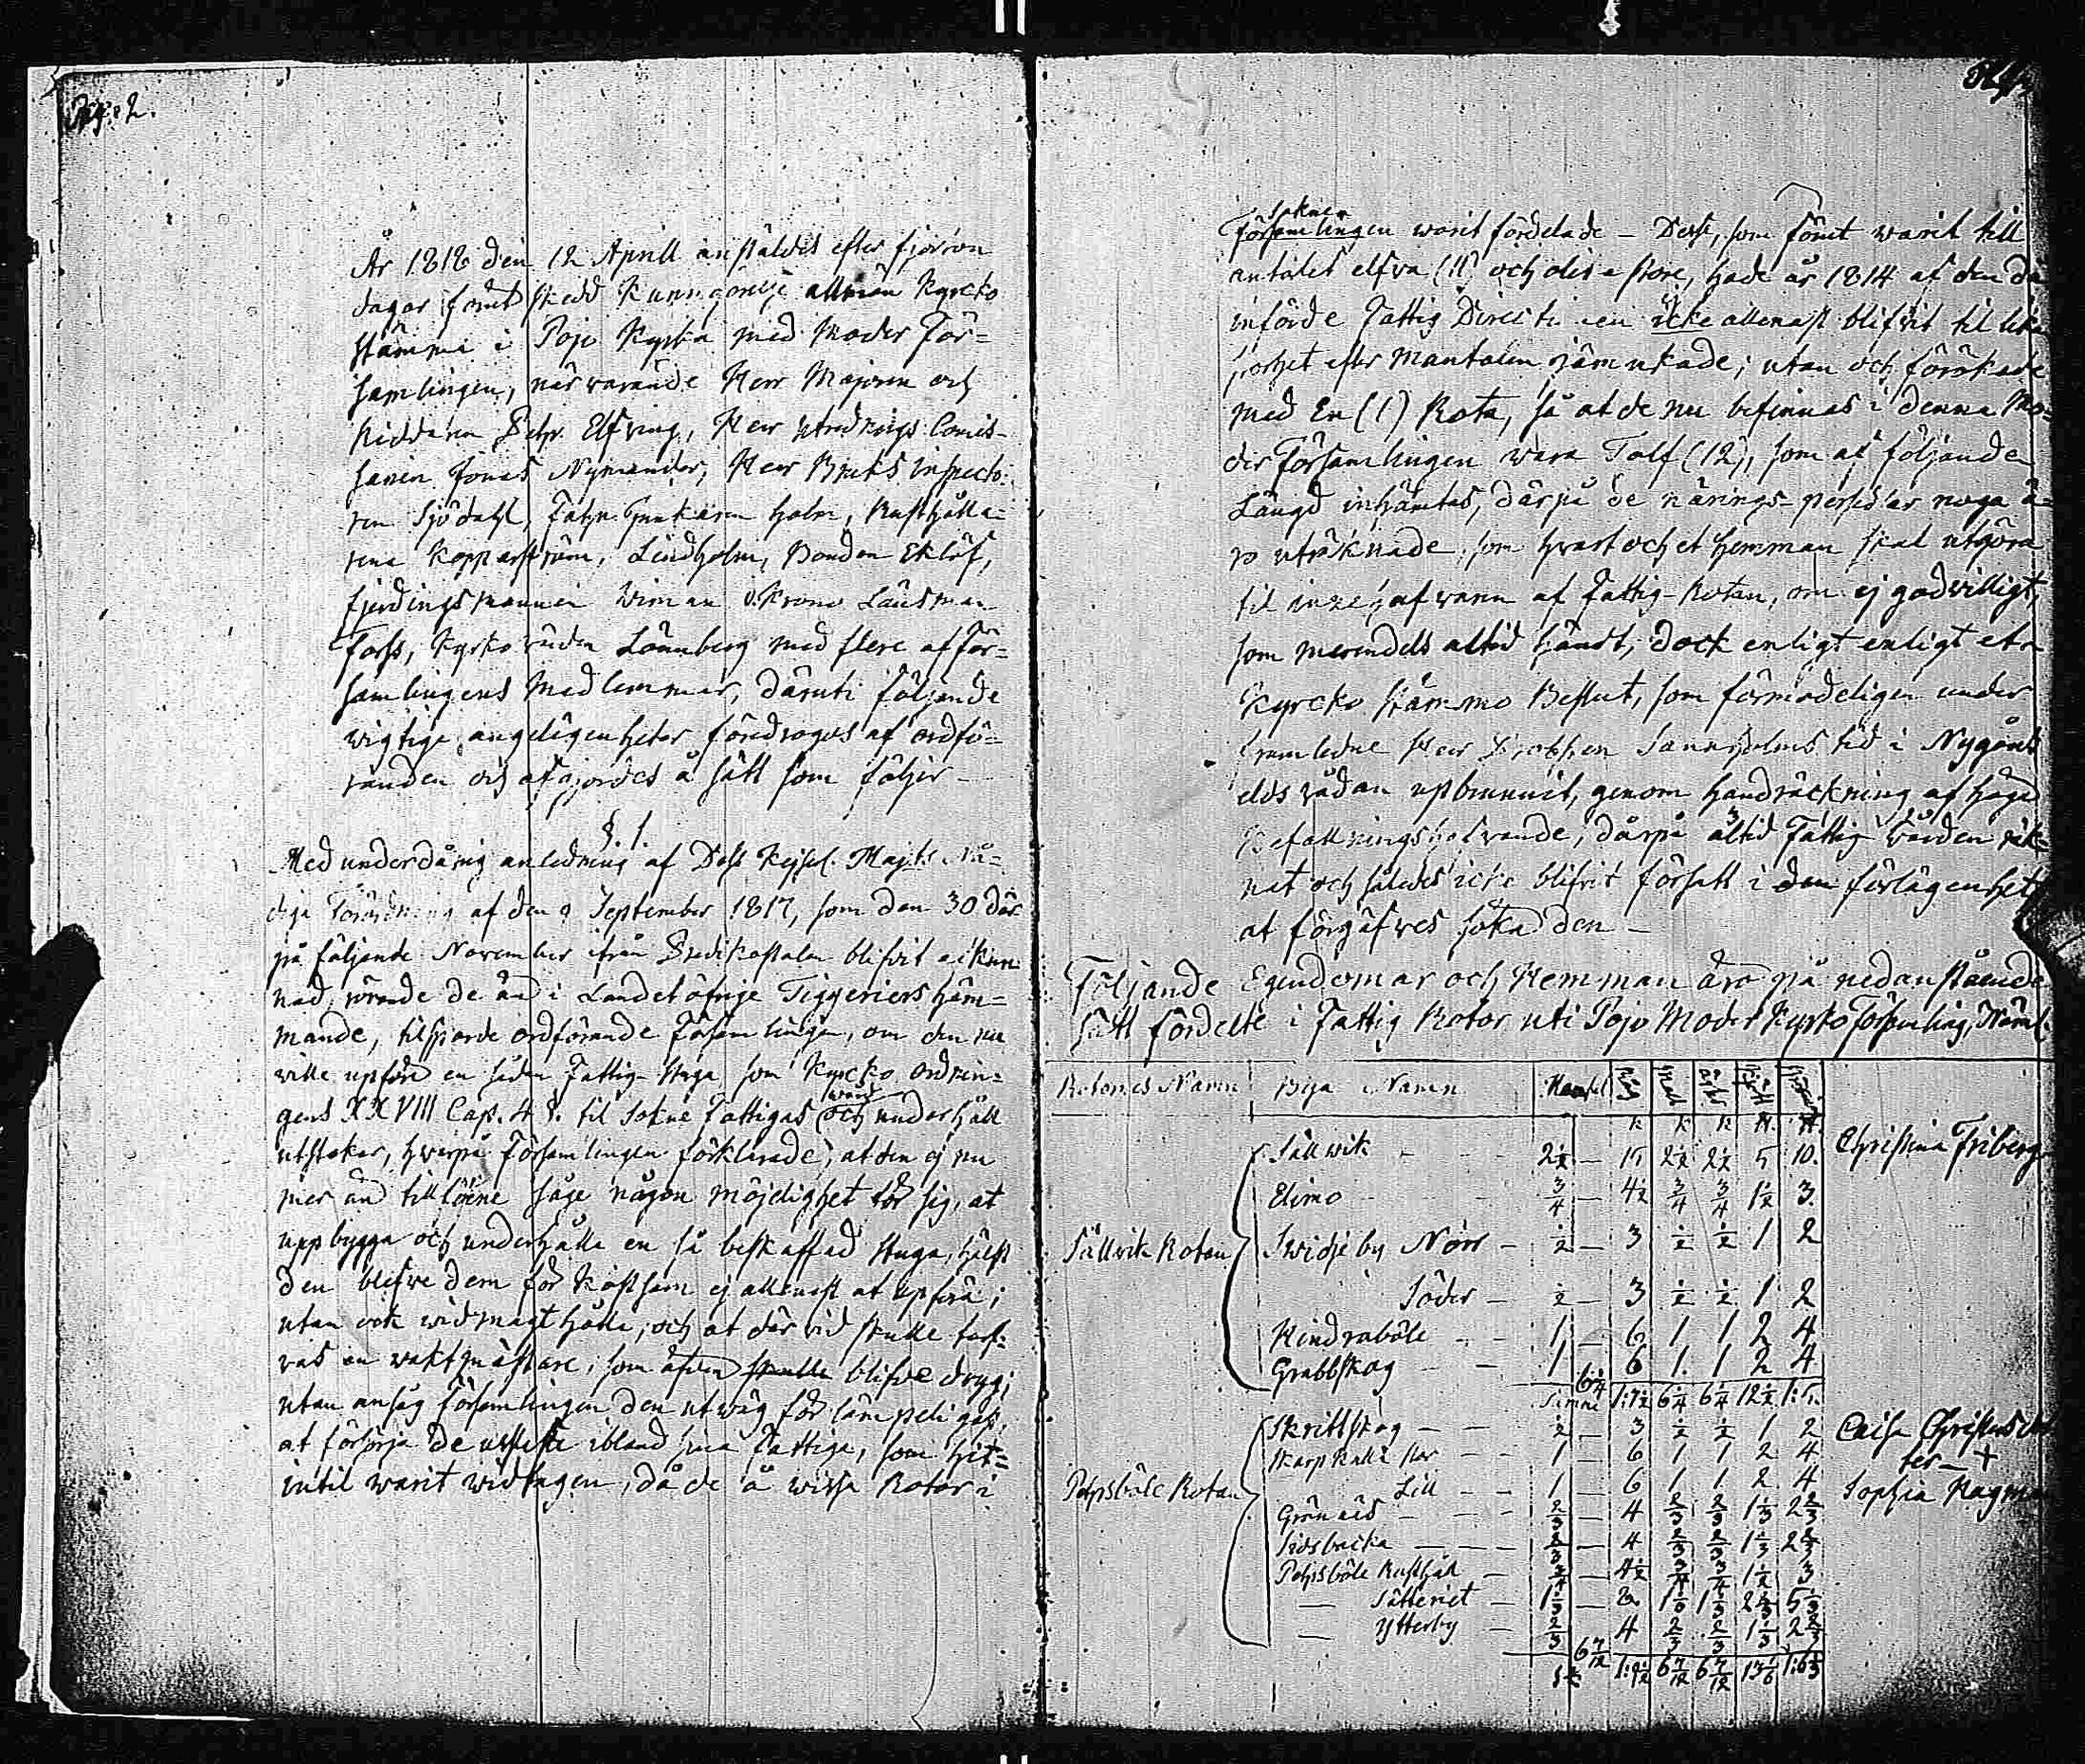 Pag: 2.
År 1818 den 12 Aprill anstäldes efter fjorton
dagar förut skedd Kunngörelse allmän Kyrcko
stämma i Pojo Kyrka med Moder För=
samlingen, närvarande Herr Majoren och
Riddaren Elfving, Herr Utrednings Comis-
sarien Jonas Nymander, Herr Bruks Inspecto-
ren Sjödahl, Holm, Rusthålla-
rena Kopparström, Lindholm, Bonden Eklöf,
Fjerdingsmannen Wiman v. Krono Länsman
Forss, Kyrkovärden Lönnberg med flere af För=
samlingens Medlemmar, däruti följande
wigtige angelägenheter föredrogos af ordfö=
randen och afgjordes å sätt som följer -
§. 1.
Med underdånig anledning af Dess Kejserl. Majts Nå=
diga Förordning af den 9 September 1817, som den 30 där
på följande November ifrån Predikostolen blifvit
nad, rörande de än i Landet öfrige Tiggeriers häm=
mande, tilsporde ordförande Församlingen, om den nu
wille upföra en sådan Fattig-Stuga som Kyrcko Ordnin=
gens XXVIII Cap. 4 §. til Sokne Fattigas wård och underhåll
utstakar, hwarpå Församlingen förklarade, at den ej nu
mer än tillförene såge någon möjelighet för sig, at
uppbygga och underhålla en så beskaffad Stuga, hälst
den blefve dem för kostsam ej allenast at upföra;
utan ock widmagthålla, och at där wid skulle tarf-
vas en waktmästare, som äfven skulle blifve dryg;
utan ansåg Församlingen den utwäg för lämpeligast,
at försörja de usleste ibland sina Fattiga, som hit=
intil warit widtagen, då de å wissa Rotar i
Soknen
Församlingen warit fördelade - Desse, som förut warit till
antalet elfva (11) och olika store, hade år 1814 af den då
införde Fattig Directionen ej icke allenast blifvit til lika
storhet efter Mantalen jämnkade; utan och förökade
med En (1) Rota, så at de nu befinnas i denna Mo=
der Församlingen vara Tolf (12), som af följande
Längd inhämtas, därpå de närings-persedlar noga ä=
ro uträknade, som hvart och et hemman skal utgöra
til af Fattig-Rotan, om ej godwilligt,
som merendels altid händt, dock enligt enligt et
Kyrcko Stämmo Beslut, som förmodeligen under
framledne Herr Sannholms tid i Nygårds
elds vådan upbrunnit, genom handräckning af höga
Befallningshafvande, därpå altid Fattig Vården räk=
nat och således icke blifvit försatt i den förlägenhet
at förgäfves söka den -
Följande Egendomar och Hemman äro på nedanstående
sätt fördelte i Fattig Rotor uti Pojo Moder Kyrko Församling, Näml.
Rotornes Namn Bya Namn Mantal
Sällvik - 2½ - 15 2½ 2½ 5 10. Christina Friberg
Elimo - ¾ - 4½ ¾ ¾ 1½ 3.
Sällvik Rotan Swidje by Norr - ½ - 3 ½ ½ 1 2
Söder - ½ - 3 ½ ½ 1 2
Kindraböle - 1 - 6 1 1 2 4
Grabbskog - 1 6 1. 1 2 4
Summa 6¼ 1:7½ 6¼ 6¼ 12½ 1:5.
Skrittskog - ½ - 3 ½ ½ 1 2 Caisa Christersdot
Skarpkulla Stor - 1 - 6 1 1 2 4 ter - +
Pehrsböle Rotan Lill - 1 - 6 1 1 2 4 Sophia Hagman
Grönnäs - ⅔ - 4 ⅔ ⅔ 1⅓ 2⅔
- ⅔ - 4 ⅔ ⅔ 1⅓ 2⅔
Pehrsböle Rusthåll - ¾ - 4½ ¾ ¾ 1½ 3
— Säteriet - 1⅓ - 8. 1⅓ 1⅓ 2⅔ 5⅓
— Ytterby - ⅔ 4 ⅔ ⅔ 1⅓ 2⅔
6 7/12 1:9½ 6 7/12 6 7/12 13 1/6 1:6⅓